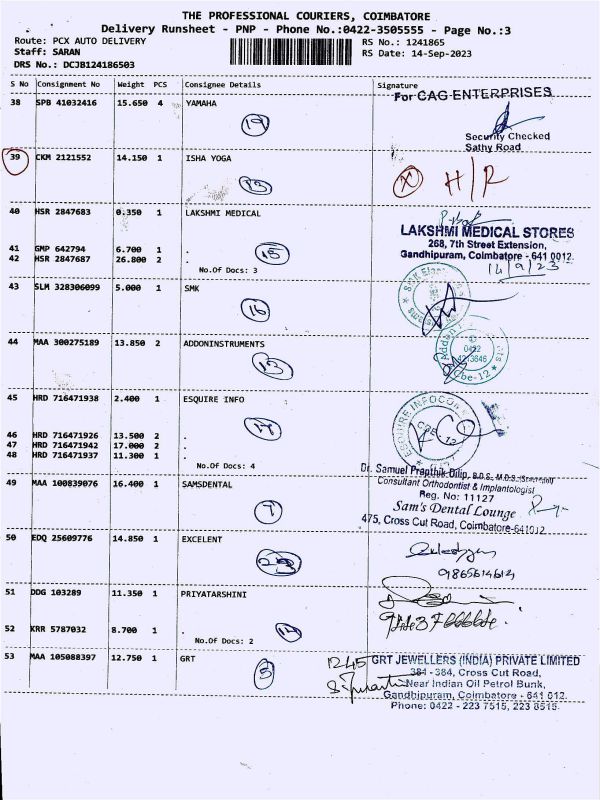 THE PROFESSIONAL COURIERS, COIMBATORE
Delivery Runsheet - PNP - Phone No.:0422-3505555 - Page No.:3
Route: PCX AUTO DELIVERY
RS No.: 1241865
Staff: SARAN
RS Date: 14-Sep-2023
DRS No.: DCJB124186503
S No Consignment No Weight PCS Consignee Details Signature
38 SPB 41032416 15.650 4 YAMAHA
For CAG ENTERPRISES
19
Security Checked
Sathy Road
39 CKM 2121552 14.150 1 ISHA YOGA
13
X H/R
40 HSR 2847683 0.350 1 LAKSHMI MEDICAL
LAKSHMI MEDICAL STORES
268, 7th Street Extension,
Gandhipuram, Coimbatore - 641 0012.
14/9/23
41 GMP 642794 6.700 1 .
42 HSR 2847687 26.800 2 .
15
No.Of Docs: 3
43 SLM 328306099 5.000 1 SMK
16
44 MAA 300275189 13.850 2 ADDONINSTRUMENTS
13
0422
Cbe-12
45 HRD 716471938 2.400 1 ESQUIRE INFO
ESQUIRE INFOCOM
CBE-12
46 HRD 716471926 13.500 2 .
47 HRD 716471942 17.000 2 .
48 HRD 716471937 11.300 1 .
No.Of Docs: 4
49 MAA 100839076 16.400 1 SAMSDENTAL
7
Dr. Samuel Prapthik Dilip, B.D.S., M.D.S.
Consultant Orthodontist & Implantologist
Reg. No: 11127
Sam's Dental Lounge
475, Cross Cut Road, Coimbatore-641012
50 EDQ 25609776 14.850 1 EXCELENT
51 DDG 103289 11.350 1 PRIYATARSHINI
52 KRR 5787032 8.700 1 .
14
No.Of Docs: 2
53 MAA 105088397 12.750 1 GRT
5
1245
GRT JEWELLERS (INDIA) PRIVATE LIMITED
384 - 384, Cross Cut Road,
Near Indian Oil Petrol Bunk,
Gandhipuram, Coimbatore - 641 012.
Phone: 0422 - 223 7515, 223 8515